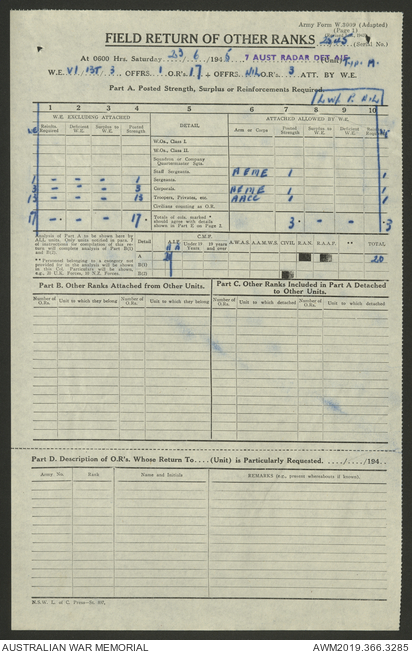 Army Form W.3009 (Adapted)
(Page 1)
FIELD RETURN OF OTHER RANKS
2525
(Serial No.)
At 0600 Hrs. Saturday 23/6/1945 7 AUST RADAR DET AIF
W.E. VI 13T 3 OFFRS. 1 O.R's. 17 + OFFRS. NIL O.R's. 3 ATT. BY W.E.
Part A. Posted Strength, Surplus or Reinforcements Required
1 2 3 4 5 6 7 8 9 10
W.E. EXCLUDING ATTACHED DETAIL ATTACHED ALLOWED BY W.E.
Reinfts. Required Deficient W.E. Surplus to W.E. Posted Strength Arm or Corps Posted Strength Surplus to W.E. Deficient W.E. Reinfts. Required
W.Os., Class I.
W.Os., Class II.
Squadron or Company Quartermaster Sgts.
Staff Sergeants. AEME 1 1
1 - - 1 Sergeants.
3 - - 3 Corporals. AEME 1 1
13 - - 13 Troopers, Privates, etc. AACC 1 1
Civilians counting as O.R.
17 - - 17 Totals of cols. marked * should agree with details shown in Part E on Page 2. 3 - - 3
Analysis of Part A to be shown here by ALL units. Only units notified in para. 1 of instructions for compilation of this return will complete analysis of Part B(1) and B(2).
Detail A.I.F. C.M.F. Under 19 19 years and over A.W.A.S. A.A.M.W.S. CIVIL R.A.N. R.A.A.F. ** TOTAL
A 20
** Personnel belonging to a category not provided for in the analysis will be shown in this Col. Particulars will be shown, e.g., 21 U.K. Forces, 10 N.Z. Forces.
B(1)
B(2)
Part B. Other Ranks Attached from Other Units.
Part C. Other Ranks Included in Part A Detached to Other Units.
Number of O.Rs. Unit to which they belong Number of O.Rs. Unit to which they belong Number of O.Rs. Unit to which detached Number of O.Rs. Unit to which detached
Part D. Description of O.R's. Whose Return To....(Unit) is Particularly Requested. ...../...../194..
Army No. Rank Name and Initials REMARKS (e.g., present whereabouts if known).
AUSTRALIAN WAR MEMORIAL AWM2019.366.3285